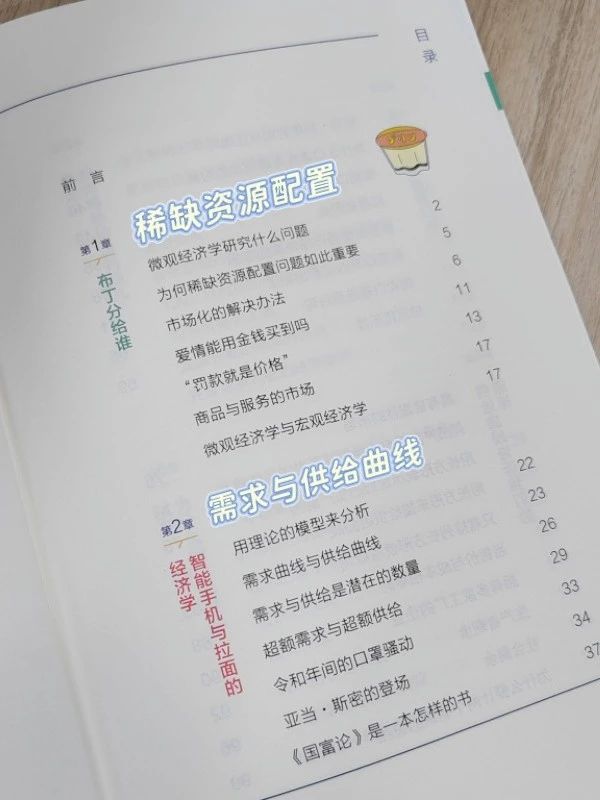 目录
前言
稀缺资源配置
第1章
布丁分给谁
微观经济学研究什么问题 2
为何稀缺资源配置问题如此重要 5
市场化的解决办法 6
爱情能用金钱买到吗 11
“罚款就是价格” 13
商品与服务的市场 17
微观经济学与宏观经济学 17
需求与供给曲线
第2章
智能手机与拉面的
经济学
用理论的模型来分析 22
需求曲线与供给曲线 23
需求与供给是潜在的数量 26
超额需求与超额供给 29
令和年间的口罩骚动 33
亚当·斯密的登场 34
《国富论》是一本怎样的书 37